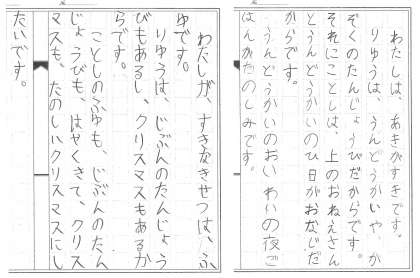 わたしは、あきがすきです。
りゅうは、うんどうかいや、か
ぞくのたんじょうびだからです。
それにことしは、上のおねえさん
とうんどうかいのひ日がおなじだ
からです。
うんどうかいのおいわいの夜ご
はんがたのしみです。
わたしが、すきなきせつは、ふ
ゆです。
りゅうは、じぶんのたんじょう
びもあるし、クリスマスもあるか
らです。
ことしのふゆも、じぶんのたん
じょうびも、はやくきて、クリス
マスも、たのしいクリスマスにし
たいです。